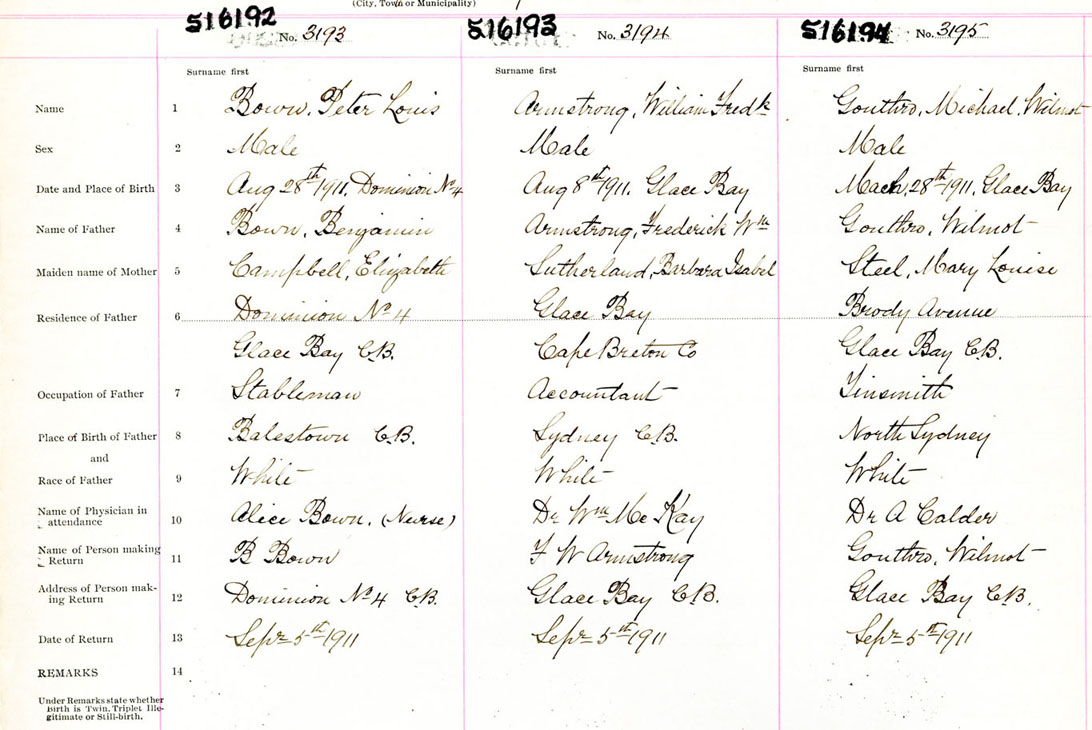 (City, Town or Municipality)
516192 No. 3193 516193 No. 3194 516194 No. 3195
Surname first Surname first Surname first
Name 1 Bown, Peter Louis Armstrong, William Fredk Gouthro, Michael Wilmot
Sex 2 Male Male Male
Date and Place of Birth 3 Aug 28th 1911, Dominion No 4 Aug 8th 1911, Glace Bay Mach, 28th 1911, Glace Bay
Name of Father 4 Bown, Benjamin Armstrong, Frederick Wm Gouthro, Wilmot
Maiden name of Mother 5 Campbell, Elizabeth Sutherland, Barbara Isabel Steel, Mary Louise
Residence of Father 6 Dominion No 4 Glace Bay Brody Avenue
Glace Bay C.B. Cape Breton Co Glace Bay C.B.
Occupation of Father 7 Stableman Accountant Tinsmith
Place of Birth of Father 8 Balestown C.B. Sydney C.B. North Sydney
and
Race of Father 9 White White White
Name of Physician in
attendance 10 Alice Bown, (Nurse) Dr Wm McKay Dr A Calder
Name of Person making
Return 11 B Bown F W Armstrong Gouthro, Wilmot
Address of Person mak-
ing Return 12 Dominion No 4 C.B. Glace Bay C.B. Glace Bay C.B.
Date of Return 13 Sepr 5th 1911 Sepr 5th 1911 Sepr 5th 1911
REMARKS 14
Under Remarks state whether
Birth is Twin, Triplet Ille-
gitimate or Still-birth.